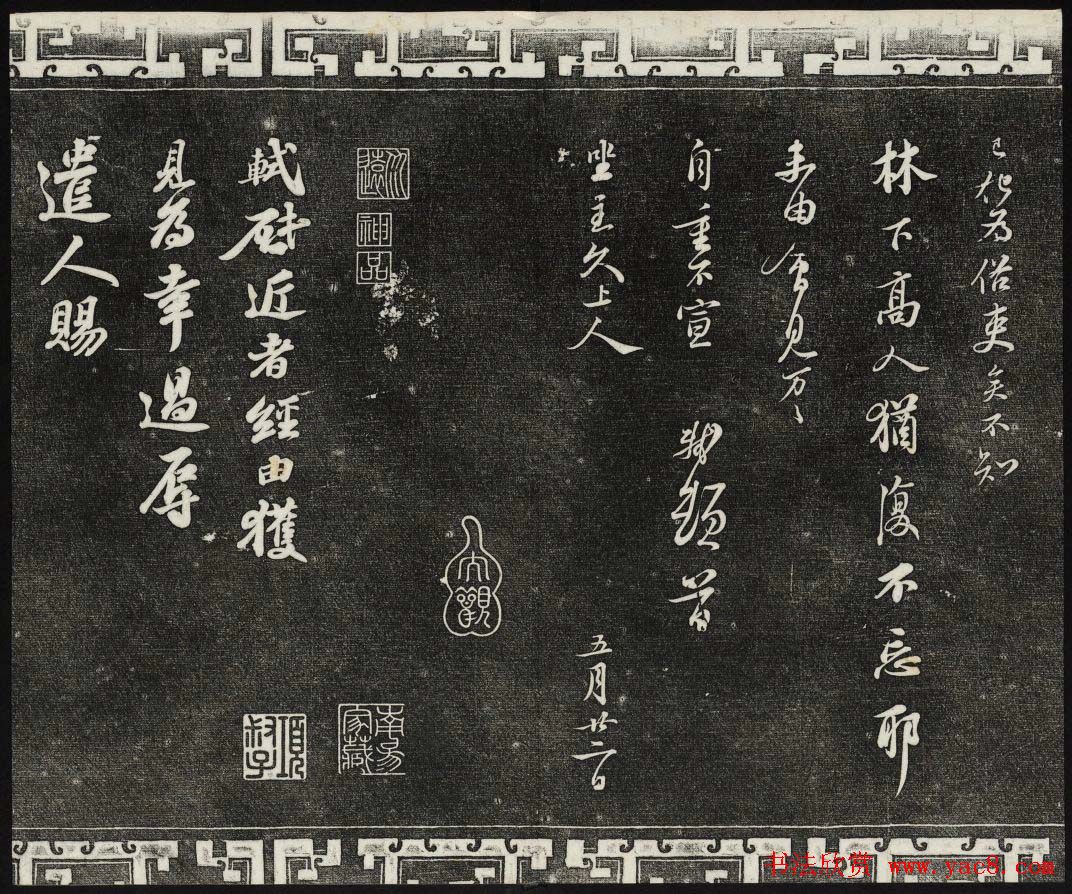 已化為俗吏矣不知
林下高人猶復不忘耶
未由會見万〻
自重不宣 軾頓首
坐主久上人 五月廿二日
大觀
神品
項叔子
軾啟近者經由獲
見為幸過辱
遣人賜
书法欣赏 www.yac8.com